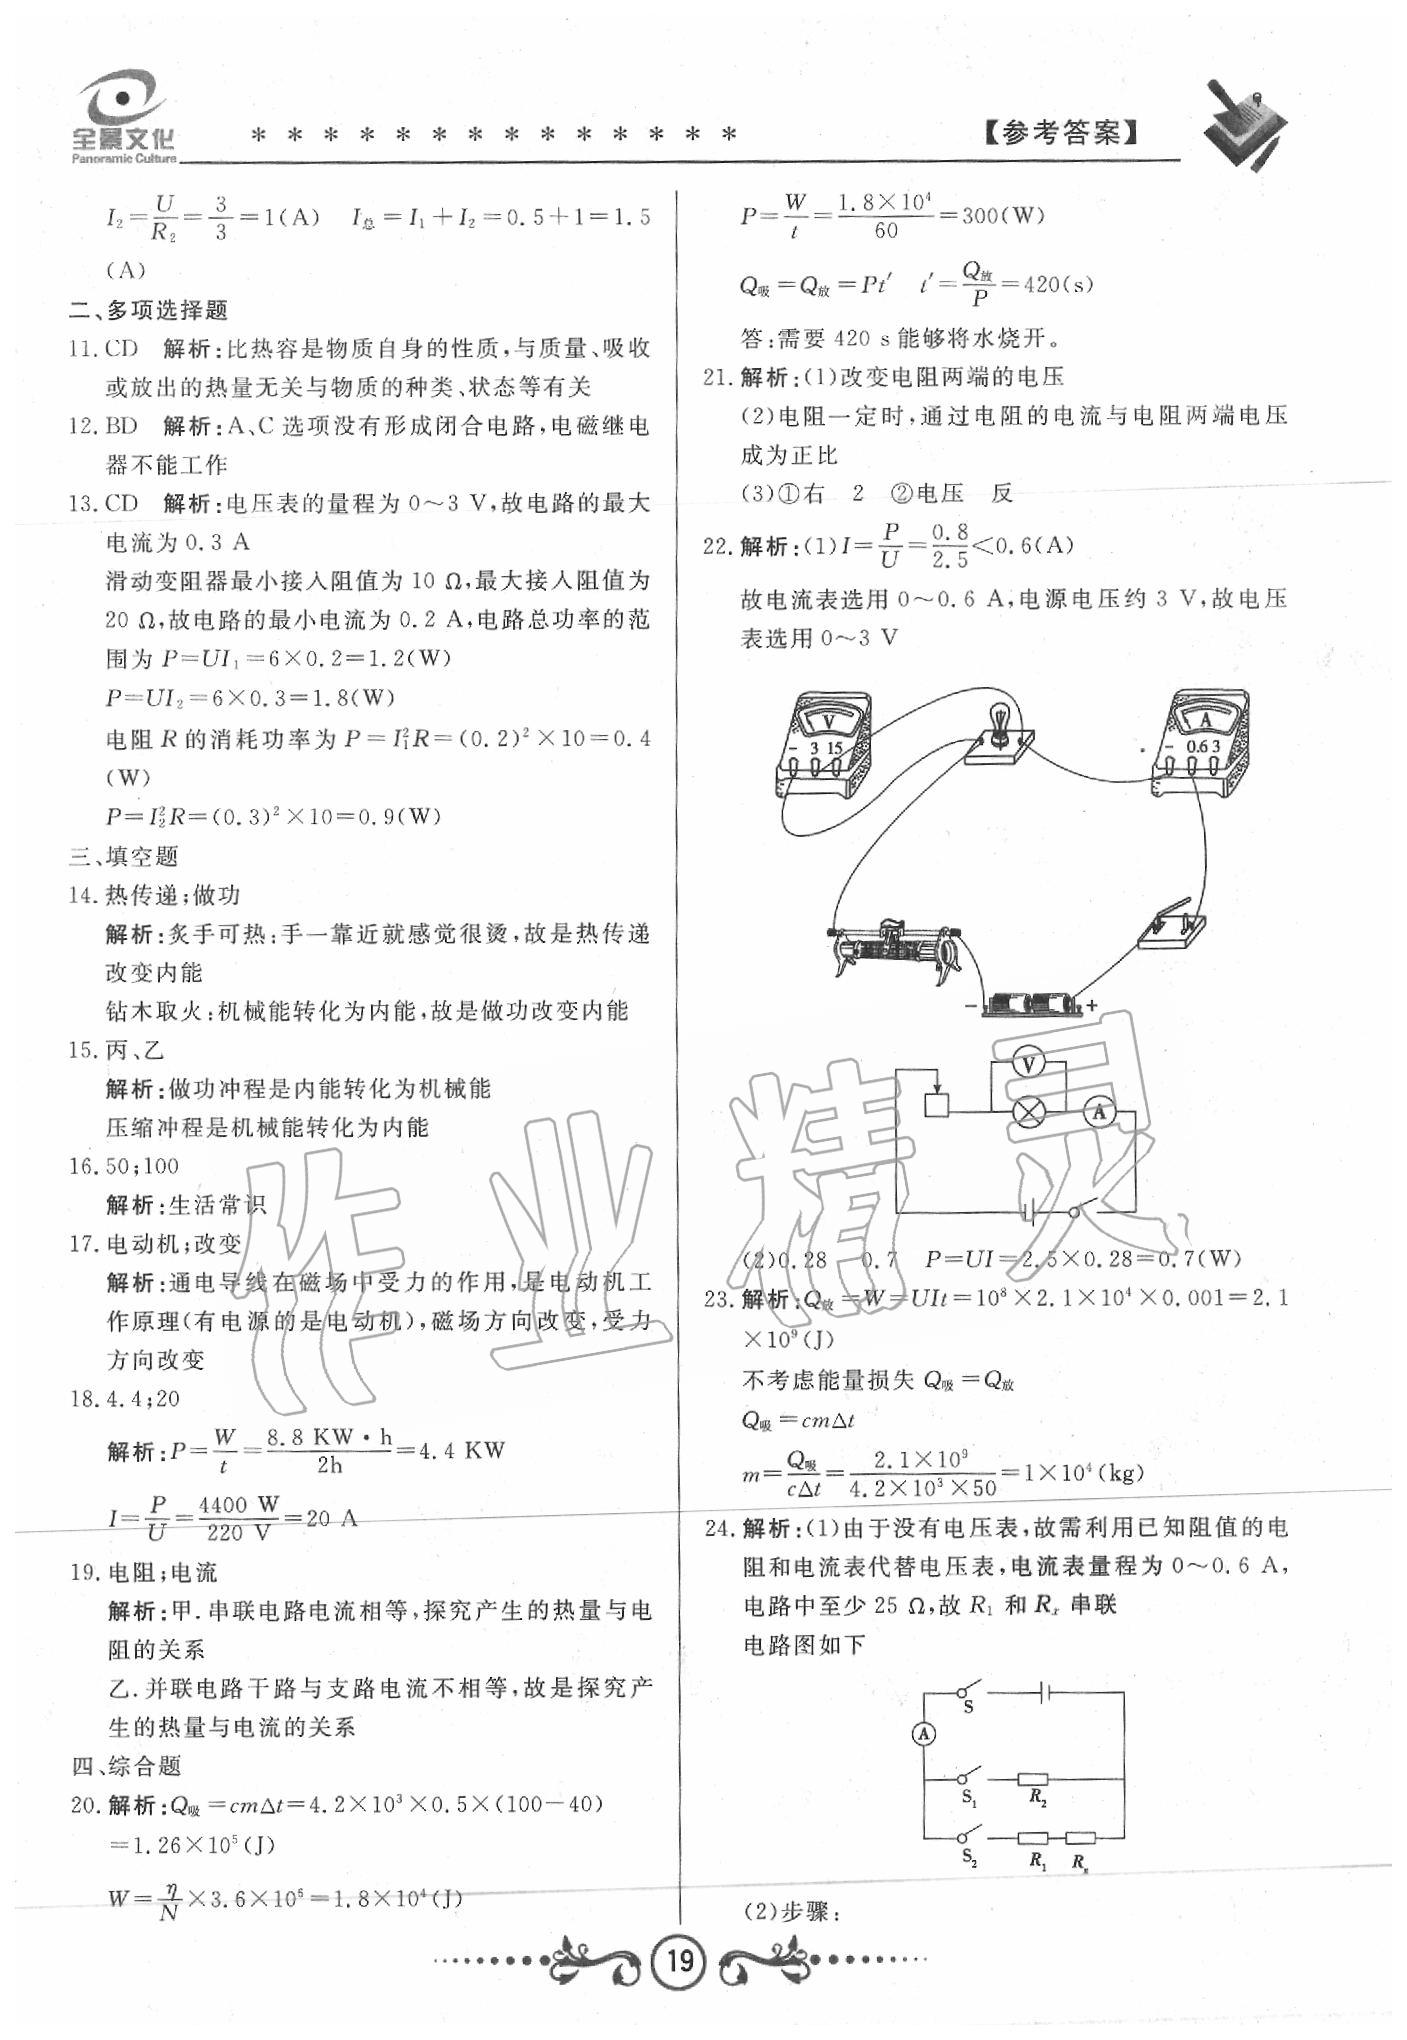 全景文化
Panoramic Culture
* * * * * * * * * * * * * *
【参考答案】
I₂=U/R₂=3/3=1(A)  I总=I₁+I₂=0.5+1=1.5
(A)
二、多项选择题
11.CD 解析:比热容是物质自身的性质,与质量、吸收
或放出的热量无关与物质的种类、状态等有关
12.BD 解析:A、C选项没有形成闭合电路,电磁继电
器不能工作
13.CD 解析:电压表的量程为0～3 V,故电路的最大
电流为0.3 A
滑动变阻器最小接入阻值为10 Ω,最大接入阻值为
20 Ω,故电路的最小电流为0.2 A,电路总功率的范
围为P=UI₁=6×0.2=1.2(W)
P=UI₂=6×0.3=1.8(W)
电阻R的消耗功率为P=I₁²R=(0.2)²×10=0.4
(W)
P=I₂²R=(0.3)²×10=0.9(W)
三、填空题
14.热传递;做功
解析:炙手可热:手一靠近就感觉很烫,故是热传递
改变内能
钻木取火:机械能转化为内能,故是做功改变内能
15.丙、乙
解析:做功冲程是内能转化为机械能
压缩冲程是机械能转化为内能
16.50;100
解析:生活常识
17.电动机;改变
解析:通电导线在磁场中受力的作用,是电动机工
作原理(有电源的是电动机),磁场方向改变,受力
方向改变
18.4.4;20
解析:P=W/t=8.8 KW·h/2h=4.4 KW
I=P/U=4400 W/220 V=20 A
19.电阻;电流
解析:甲.串联电路电流相等,探究产生的热量与电
阻的关系
乙.并联电路干路与支路电流不相等,故是探究产
生的热量与电流的关系
四、综合题
20.解析:Q吸=cmΔt=4.2×10³×0.5×(100-40)
=1.26×10⁵(J)
W=η/N×3.6×10⁶=1.8×10⁴(J)
P=W/t=1.8×10⁴/60=300(W)
Q吸=Q放=Pt′  t′=Q放/P=420(s)
答:需要420 s能够将水烧开。
21.解析:(1)改变电阻两端的电压
(2)电阻一定时,通过电阻的电流与电阻两端电压
成为正比
(3)①右 2 ②电压 反
22.解析:(1)I=P/U=0.8/2.5<0.6(A)
故电流表选用0～0.6 A,电源电压约3 V,故电压
表选用0～3 V
V
- 3 15
A
- 0.6 3
- +
V
A
(2)0.28 0.7 P=UI=2.5×0.28=0.7(W)
23.解析:Q放=W=UIt=10⁸×2.1×10⁴×0.001=2.1
×10⁹(J)
不考虑能量损失Q吸=Q放
Q吸=cmΔt
m=Q吸/cΔt=2.1×10⁹/4.2×10³×50=1×10⁴(kg)
24.解析:(1)由于没有电压表,故需利用已知阻值的电
阻和电流表代替电压表,电流表量程为0～0.6 A,
电路中至少25 Ω,故R₁和Rₓ串联
电路图如下
S
A
S₁ R₂
S₂ R₁ Rₓ
(2)步骤:
19
作业精灵